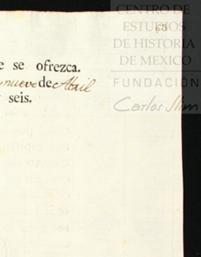 CENTRO DE
ESTUDIOS
DE HISTORIA
DE MEXICO
FUNDACIÓN
Carlos Slim
e se ofrezca.
nueve de Abril
seis.